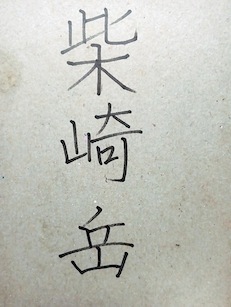 柴崎岳